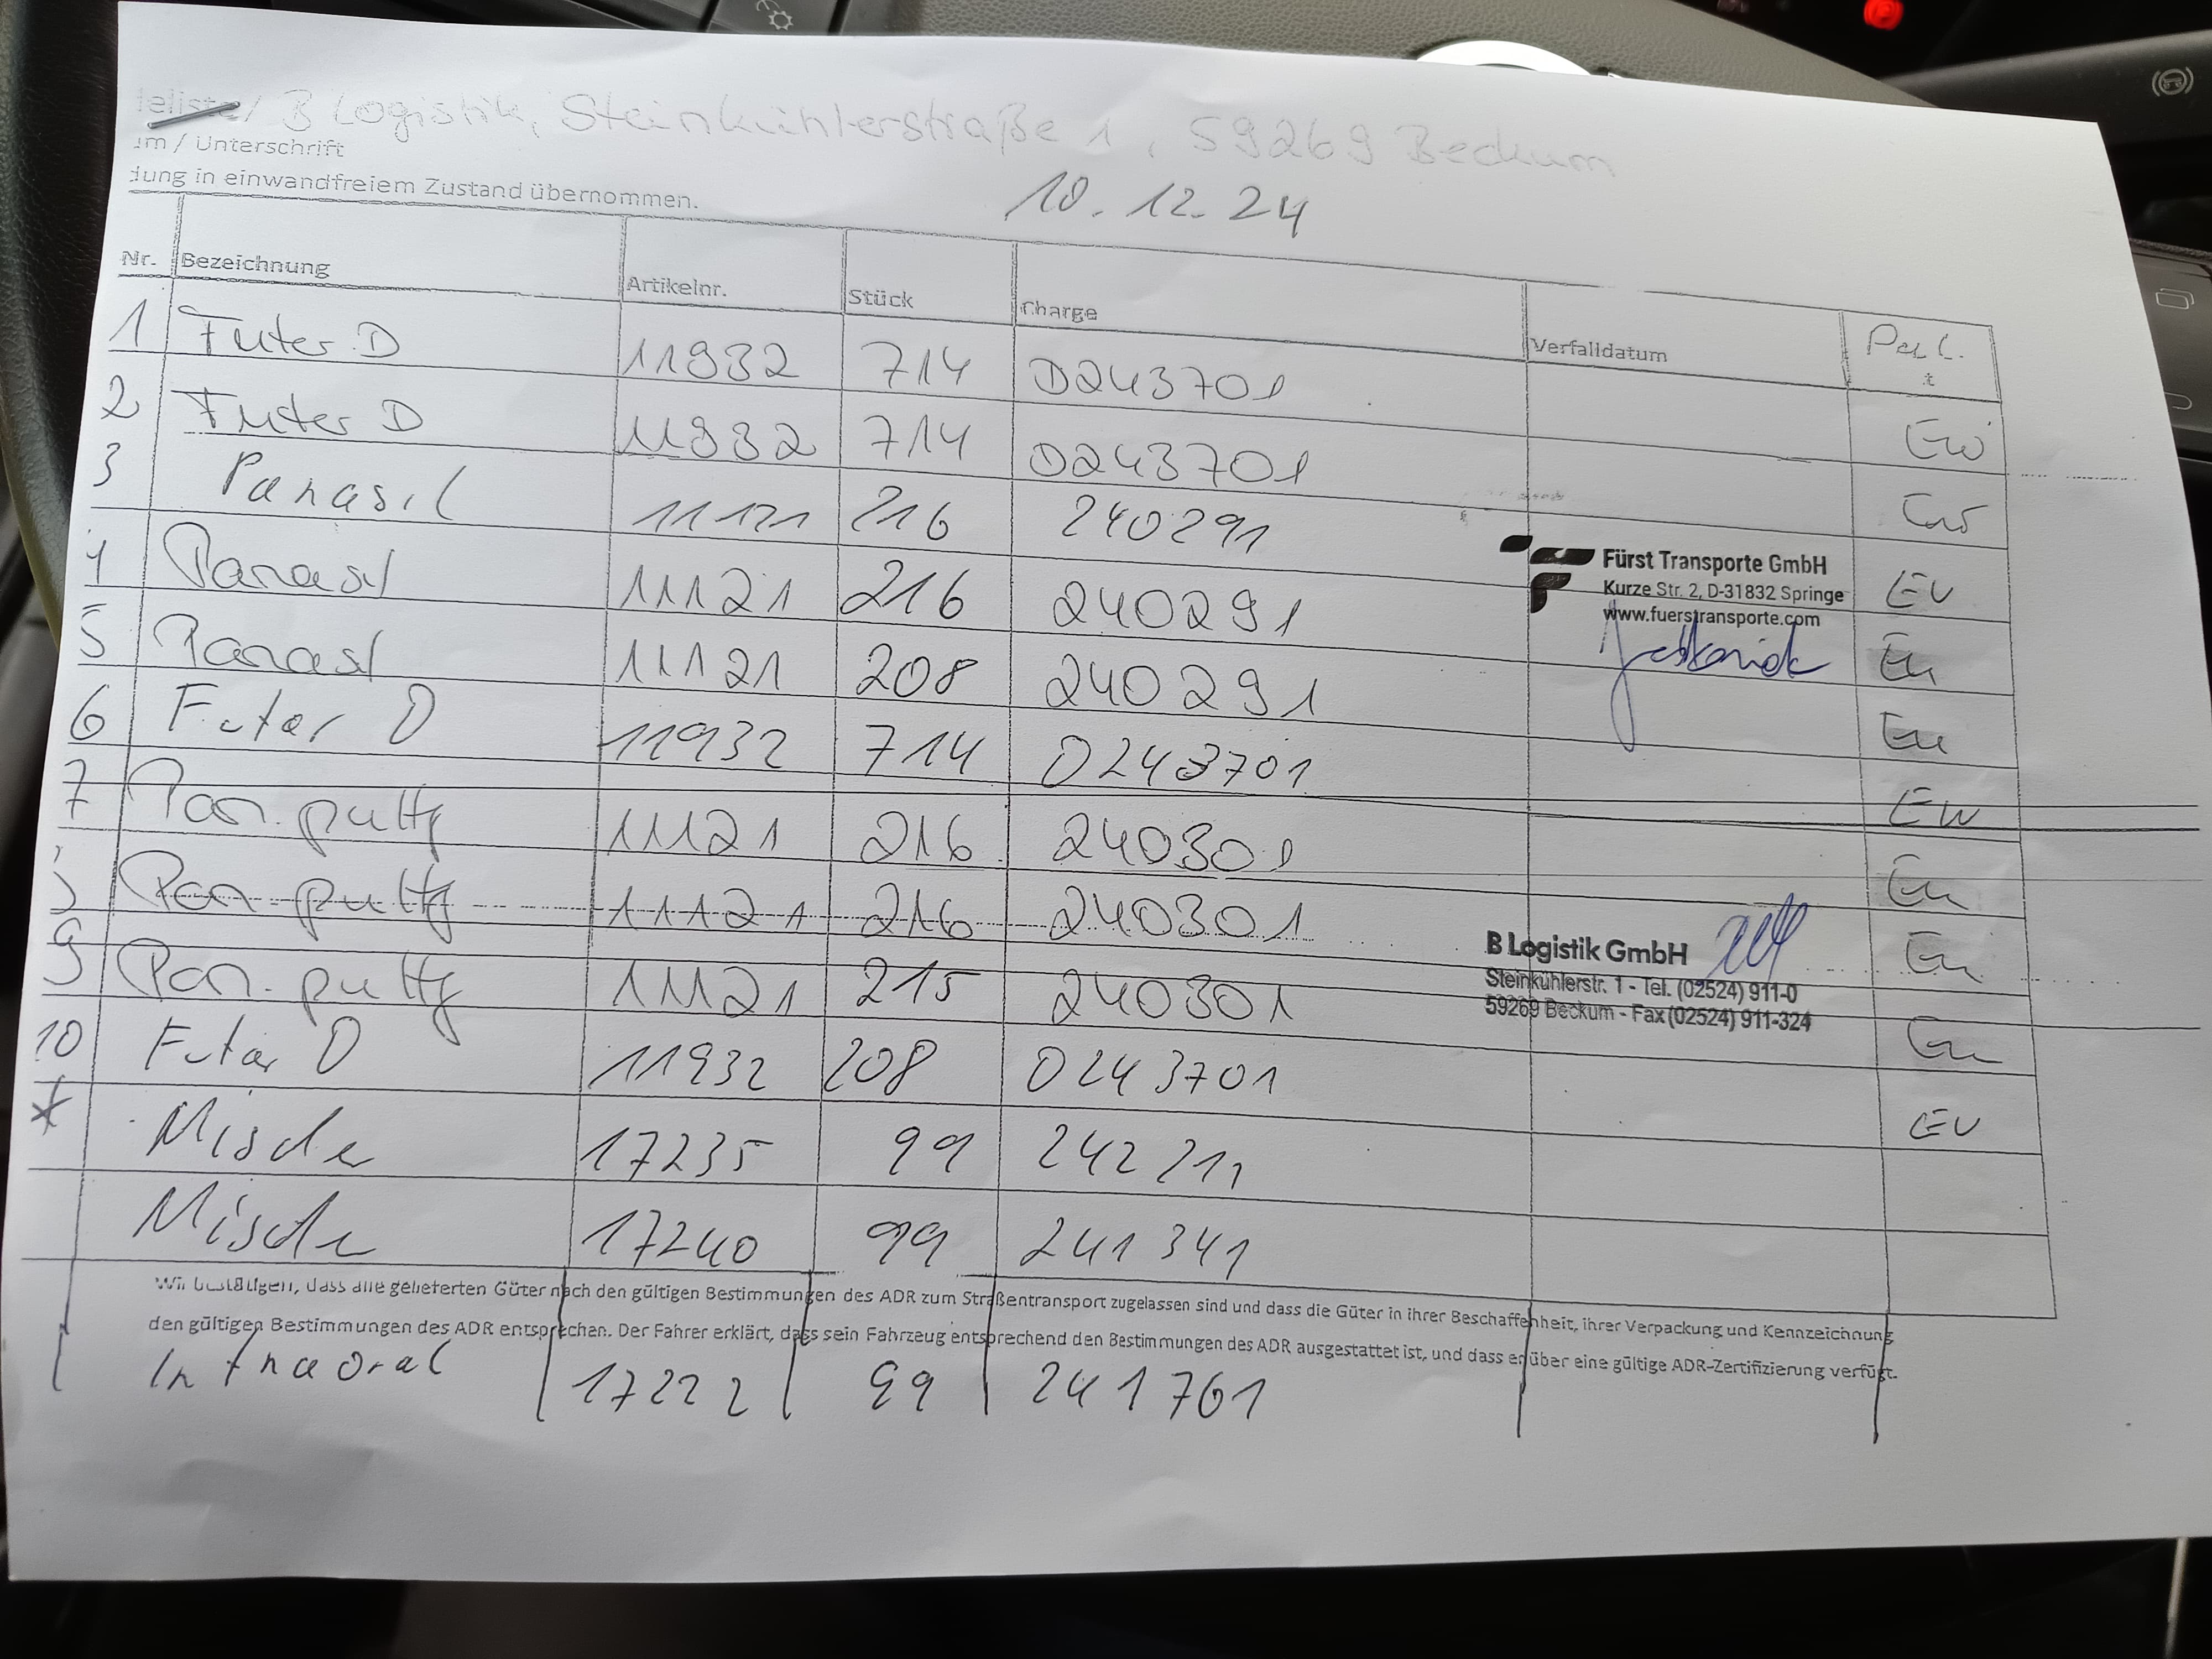 B Logistik, Steinkühlerstraße 1, 59269 Beckum
/ Unterschrift
in einwandfreiem Zustand übernommen.
10.12.24
Nr. Bezeichnung Artikelnr. Stück Charge Verfalldatum
1 Futer D 11932 714 D243701 EW
2 Futer D 11932 714 D243701 EW
3 Panasil 11121 216 240291 EU
4 Panasil 11121 216 240291 EU
5 Panasil 11121 208 240291 EU
6 Futar D 11932 714 D243701 EW
7 Pan. putty 11121 216 240301 EU
Pan. putty 11121 216 240301 EU
9 Pan. putty 11121 215 240301 EU
10 Futar D 11932 208 D243701 EU
* Mischer 17235 99 242211
Mischer 17240 99 241341
Fürst Transporte GmbH
Kurze Str. 2, D-31832 Springe
www.fuerstransporte.com
B Logistik GmbH
Steinkühlerstr. 1 - Tel. (02524) 911-0
59269 Beckum - Fax (02524) 911-324
Wir bestätigen, dass alle gelieferten Güter nach den gültigen Bestimmungen des ADR zum Straßentransport zugelassen sind und dass die Güter in ihrer Beschaffenheit, ihrer Verpackung und Kennzeichnung
den gültigen Bestimmungen des ADR entsprechen. Der Fahrer erklärt, dass sein Fahrzeug entsprechend den Bestimmungen des ADR ausgestattet ist, und dass er über eine gültige ADR-Zertifizierung verfügt.
Intraoral 17222 99 241761